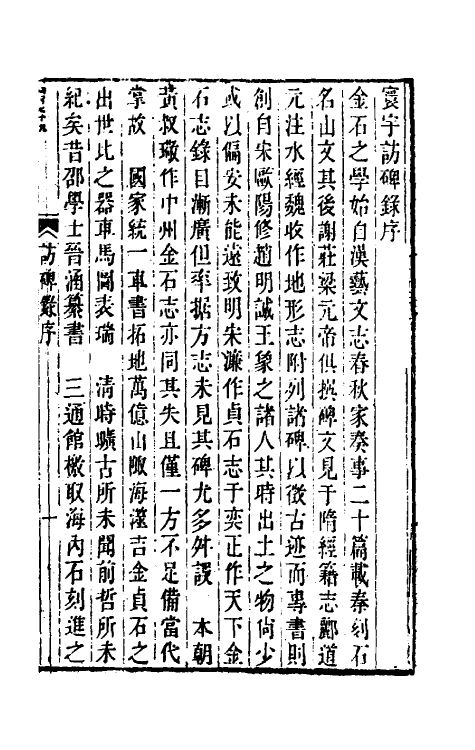 寰宇訪碑錄序
金石之學始自漢藝文志春秋家奏事二十篇載秦刻石
名山文其後謝莊梁元帝俱撰碑文見于隋經籍志酈道
元注水經魏收作地形志附列諸碑以徵古迹而專書則
創自宋歐陽修趙明誠王象之諸人其時出土之物尙少
或以偏安未能遠致明朱濂作貞石志于奕正作天下金
石志錄目漸廣但率据方志未見其碑尤多舛誤 本朝
黃叔璥作中州金石志亦同其失且僅一方不足備當代
掌故 國家統一車書拓地萬億山陬海澨吉金貞石之
出世比之器車馬圖表瑞 淸時曠古所未聞前哲所未
紀矣昔邵學士晉涵纂書 三通館檄取海內石刻進之
訪碑錄序
一